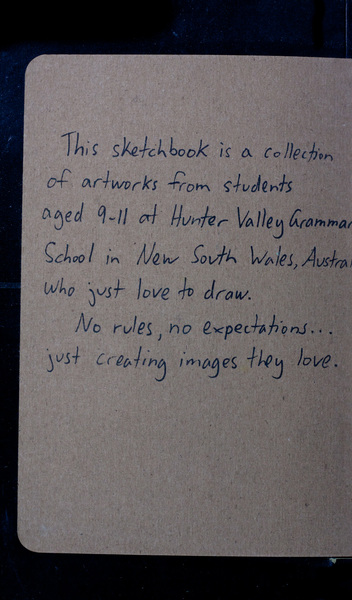 This sketchbook is a collection
of artworks from students
aged 9-11 at Hunter Valley Grammar
School in New South Wales, Austra
who just love to draw.
No rules, no expectations...
just creating images they love.